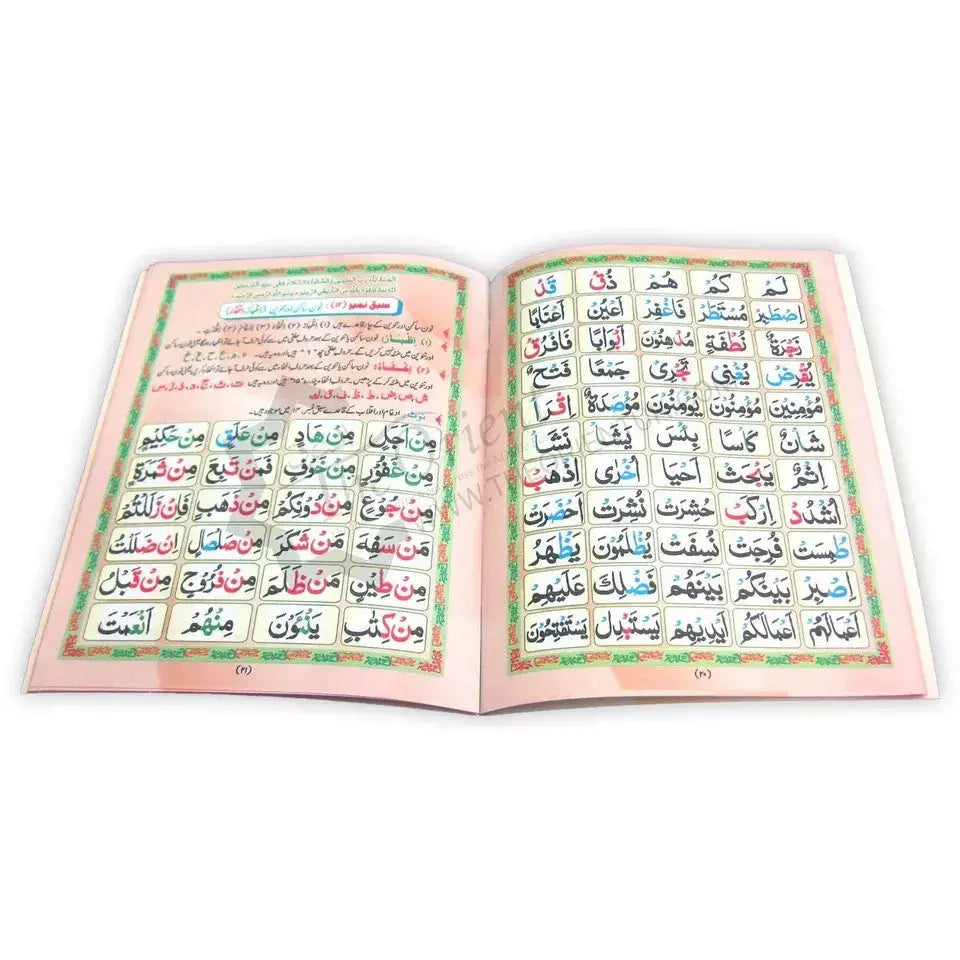 لَمْ كُمْ هُمْ ذُقْ قَدْ
اِصْطَبِرْ مُسْتَطَرٌ فَاغْفِرْ اَعْيُنٌ اَعْنَابًا
زَجْرَةٌ نُطْفَةٍ مُدْهِنُوْنَ اَبْوَابًا فَافْرُقْ
يُقْرِضُ يُغْنِيْ تَجْرِيْ جَمْعًا فَتْحٌ
مُؤْمِنِيْنَ مُؤْمِنُوْنَ يُؤْمِنُوْنَ مُؤْصَدَةٌ اِقْرَاْ
شَاْنٌ كَاْسًا بِئْسَ يَشَاْ نَشَاْ
اِثْمٌ يَبْحَثُ اَحْيَا اُخْرٰى اِذْهَبْ
اُشْدُدْ اِرْكَبْ حُشِرَتْ نُشِرَتْ اَحْضَرَتْ
طُمِسَتْ فُرِجَتْ نُسِفَتْ يُظْلَمُوْنَ يُظْهِرُ
اِصْبِرْ بَيْنَكُمْ بَيْنَهُمْ فَضْلِكَ عَلَيْهِمْ
اَعْمَالَهُمْ اَعْمَالَكُمْ اَيْدِيْهِمْ يَسْتَبْدِلْ يَسْتَفْتِحُوْنَ
(۲۰)
سبق نمبر (۱۳) : نون ساکن اور تنوین (اِظہار، اِخفاء)
نون ساکن اور تنوین کے چار قاعدے ہیں (۱) اظہار (۲) اخفاء (۳) ادغام (۴) اقلاب۔
ت، ث، ج، د، ذ، ز، س
ش، ص، ض، ط، ظ، ف، ق، ک
مِنْ اَجْلِ مِنْ هَادٍ مِنْ عَلَقٍ مِنْ حَكِيْمٍ
مِنْ غَفُوْرٍ مِنْ خَوْفٍ فَمَنْ تَبِعَ مِنْ ثَمَرَةٍ
مِنْ جُوْعٍ مِنْ دُوْنِكُمْ مِنْ ذَهَبٍ فَاِنْ زَلَلْتُمْ
مَنْ سَفِهَ مَنْ شَكَرَ مِنْ صَلْصَالٍ اِنْ ضَلَلْتُ
مِنْ طِيْنٍ مَنْ ظَلَمَ مِنْ فُرُوْجٍ مِنْ قَبْلُ
مِنْ كِتٰبٍ يَنْئَوْنَ مِنْهُمْ اَنْعَمْتَ
(۲۱)